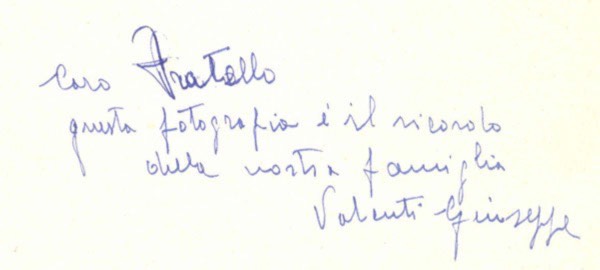 Caro Fratello
questa fotografia è il ricordo
della nostra famiglia
Valenti Giuseppe